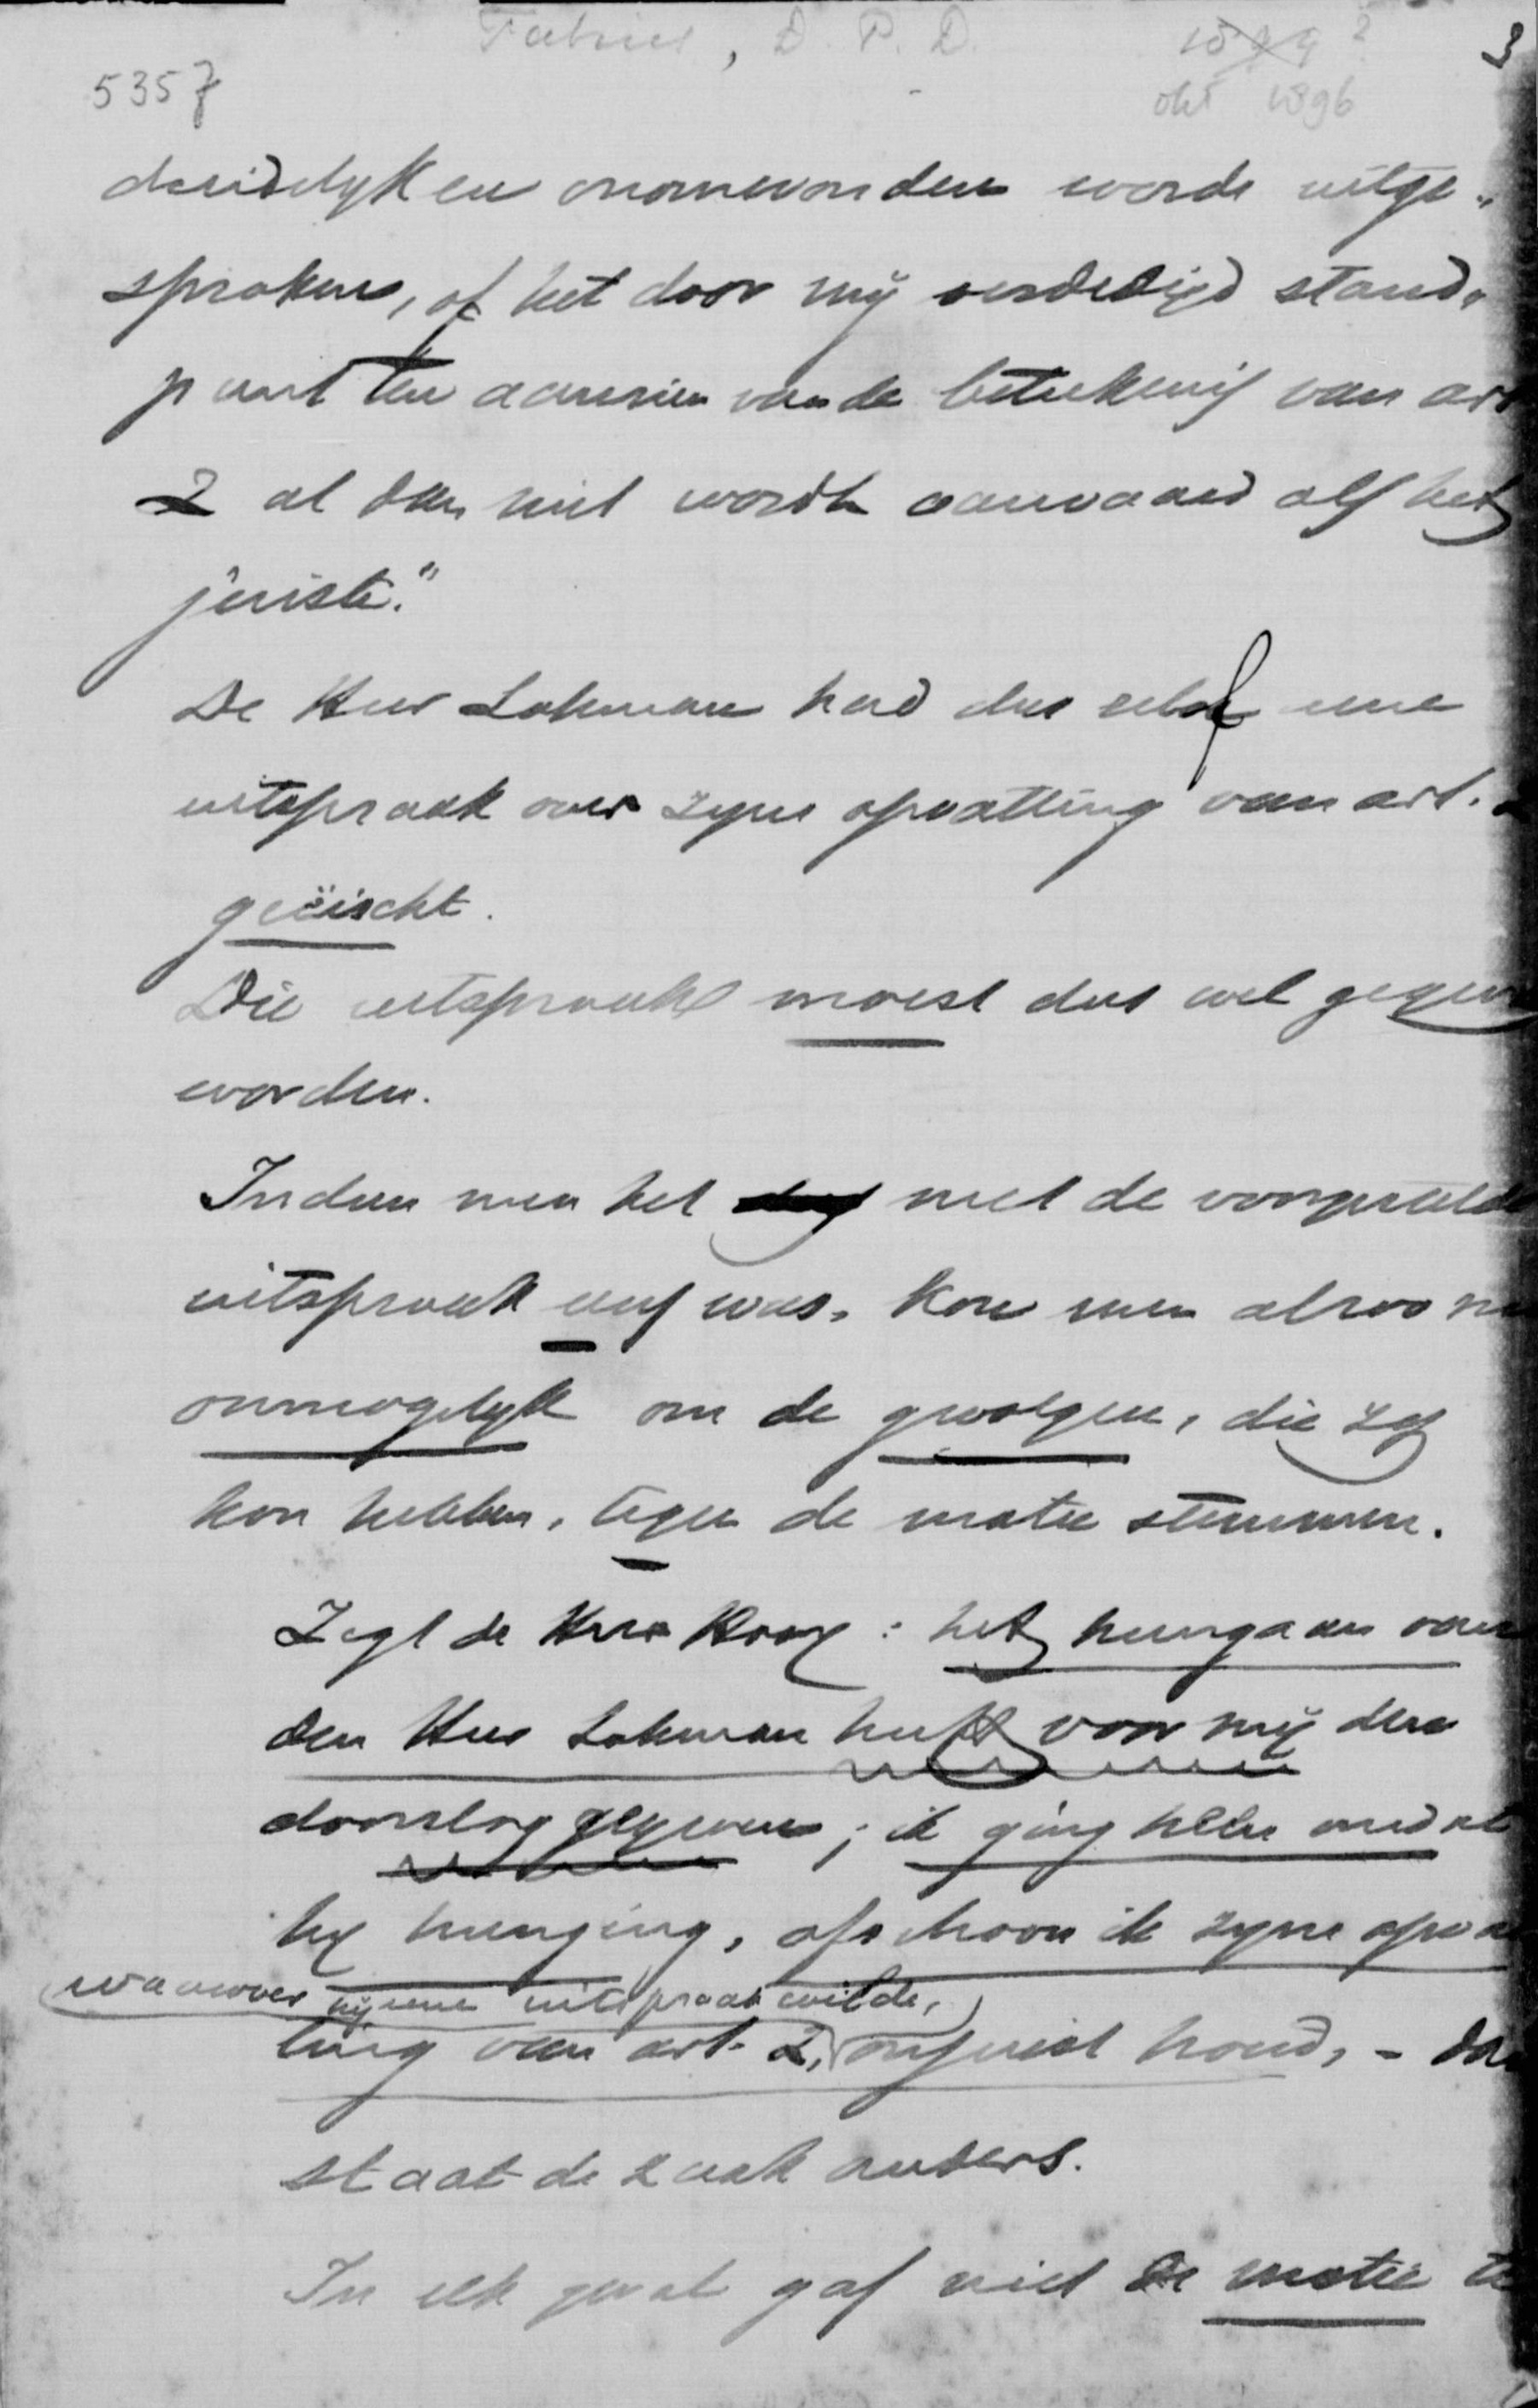 Fabius, D. P. D.
1899 ?
3
5357
okt 1896
duidelyk en onomwonden worde uitge-
sproken, of het door mij verdedigd stand-
punt ten aanzien van de beteekenis van art
2 al dan niet wordt aanvaard als het
juiste."
De Heer Lohman had dus zelf eene
uitspraak over zyne opvatting van art. 2
geëischt.
Die uitspraak moest dus wel gegeven
worden.
Indien men het met de voorgestelde
uitspraak eens was, kon men alzoo
onmogelyk om de gevolgen, die zy
kon hebben, tegen de motie stemmen.
Zegt de Heer : het heengaan van
den Heer Lohman heeft voor mij den
doorslag gegeven; ik ging heen omdat
hy heenging, ofschoon ik zyne opvat
waarover hij eene uitspraak wilde,
ting van art. 2, onjuist houd, - dan
staat de zaak anders.
In elk geval gaf niet de motie